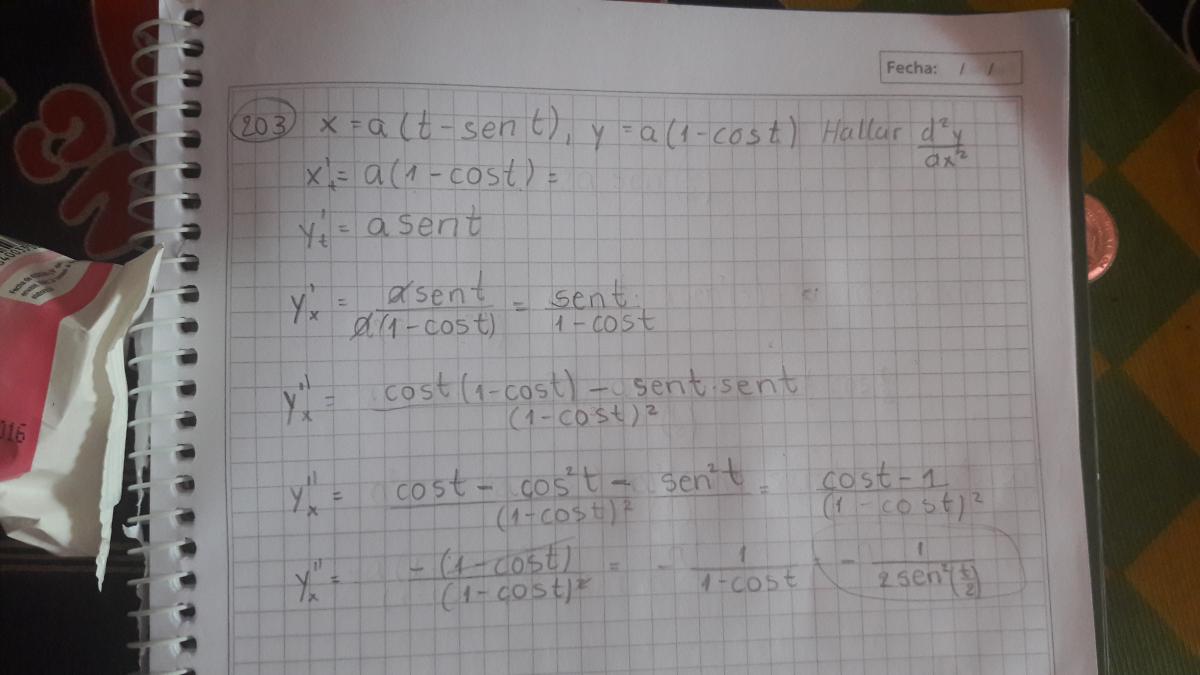 Fecha: / /
203 x = a(t - sen t), y = a(1 - cost) Hallar d²y/dx²
x't = a(1 - cost) =
y't = a sent
y'x = a sent / a(1 - cost) = sent / 1 - cost
y''x = cost(1 - cost) - sent·sent / (1 - cost)²
y''x = cost - cos²t - sen²t / (1 - cost)² = cost - 1 / (1 - cost)²
y''x = -(1 - cost) / (1 - cost)² = - 1 / 1 - cost = - 1 / 2sen²(t/2)
016